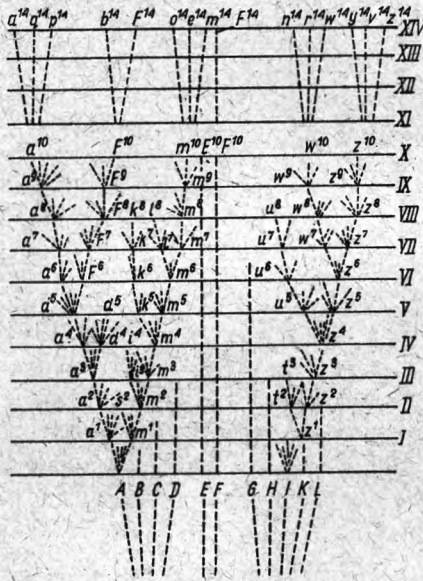 a¹⁴ q¹⁴ p¹⁴ b¹⁴ F¹⁴ o¹⁴ e¹⁴ m¹⁴ F¹⁴ n¹⁴ r¹⁴ w¹⁴ y¹⁴ v¹⁴ z¹⁴
XIV
XIII
XII
XI
a¹⁰ F¹⁰ m¹⁰ E¹⁰ F¹⁰ w¹⁰ z¹⁰ X
a⁹ F⁹ m⁹ w⁹ z⁹ IX
a⁸ F⁸ k⁸ l⁸ m⁸ u⁸ w⁸ z⁸ VIII
a⁷ F⁷ k⁷ l⁷ m⁷ u⁷ w⁷ z⁷ VII
a⁶ F⁶ k⁶ m⁶ u⁶ z⁶ VI
a⁵ a⁵ k⁵ m⁵ u⁵ z⁵ V
a⁴ d⁴ i⁴ m⁴ z⁴ IV
a³ m³ t³ z³ III
a² s² m² t² z² II
a¹ m¹ z¹ I
A B C D E F G H I K L